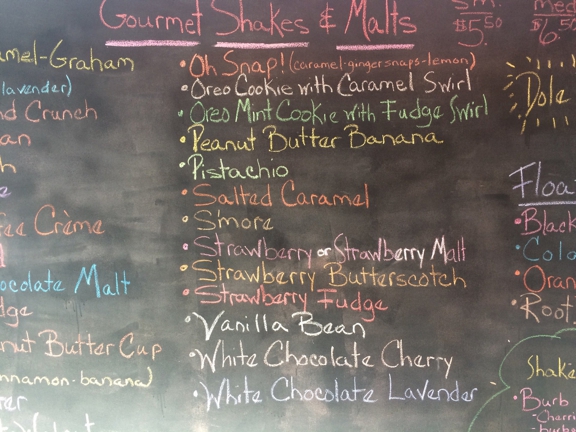 Gourmet Shakes & Malts
Sm.
$5.50
med
$6.
amel-Graham
lavender)
nd Crunch
an
h
e
ee Crème
ocolate Malt
dge
nut Butter Cup
nnamon-banana)
rer
• Oh Snap! (caramel-gingersnaps-lemon)
• Oreo Cookie with Caramel Swirl
• Oreo Mint Cookie with Fudge Swirl
• Peanut Butter Banana
• Pistachio
• Salted Caramel
• S'more
• Strawberry or Strawberry Malt
• Strawberry Butterscotch
• Strawberry Fudge
• Vanilla Bean
• White Chocolate Cherry
• White Chocolate Lavender
Dole
Floa
• Black
• Cola
• Oran
• Root
Shake
• Burb
- Cherri
- burb